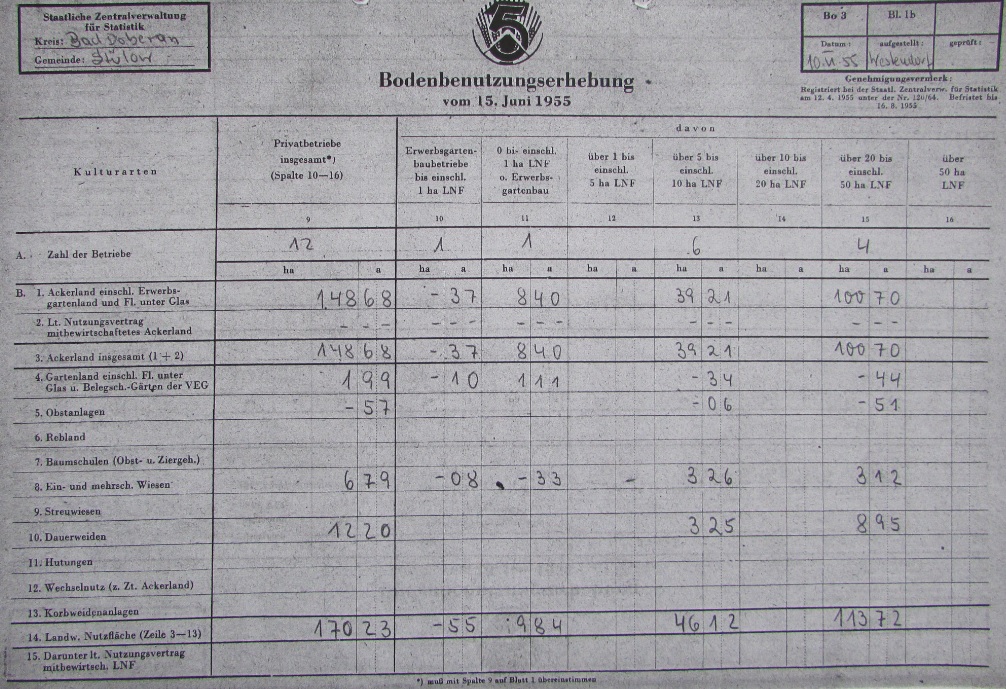 Staatliche Zentralverwaltung
für Statistik
Kreis: Bad Doberan
Gemeinde: Stülow
5
Bo 3 Bl. 1b
Datum: aufgestellt: geprüft:
10.11.55 Westendorf
Genehmigungsvermerk:
Registriert bei der Staatl. Zentralverw. für Statistik
am 12. 4. 1955 unter der Nr. 120/64. Befristet bis
16. 8. 1955
Bodenbenutzungserhebung
vom 15. Juni 1955
Kulturarten
Privatbetriebe
insgesamt*)
(Spalte 10—16)
davon
Erwerbsgarten-
baubetriebe
bis einschl.
1 ha LNF
0 bis einschl.
1 ha LNF
o. Erwerbs-
gartenbau
über 1 bis
einschl.
5 ha LNF
über 5 bis
einschl.
10 ha LNF
über 10 bis
einschl.
20 ha LNF
über 20 bis
einschl.
50 ha LNF
über
50 ha
LNF
9 10 11 12 13 14 15 16
A. Zahl der Betriebe 12 1 1 6 4
ha a ha a ha a ha a ha a ha a ha a ha a
B. 1. Ackerland einschl. Erwerbs-
gartenland und Fl. unter Glas 148 68 - 37 8 40 39 21 100 70
2. Lt. Nutzungsvertrag
mitbewirtschaftetes Ackerland - - - - - - - - - - - - - - -
3. Ackerland insgesamt (1 + 2) 148 68 - 37 8 40 39 21 100 70
4. Gartenland einschl. Fl. unter
Glas u. Belegsch.-Gärten der VEG 1 99 - 10 1 11 - 34 - 44
5. Obstanlagen - 57 - 06 - 51
6. Rebland
7. Baumschulen (Obst- u. Ziergeh.)
8. Ein- und mehrsch. Wiesen 6 79 - 08 - 33 - 3 26 3 12
9. Streuwiesen
10. Dauerweiden 12 20 3 25 8 95
11. Hutungen
12. Wechselnutz (z. Zt. Ackerland)
13. Korbweidenanlagen
14. Landw. Nutzfläche (Zeile 3—13) 170 23 - 55 9 84 46 12 113 72
15. Darunter lt. Nutzungsvertrag
mitbewirtsch. LNF
*) muß mit Spalte 9 auf Blatt 1 übereinstimmen